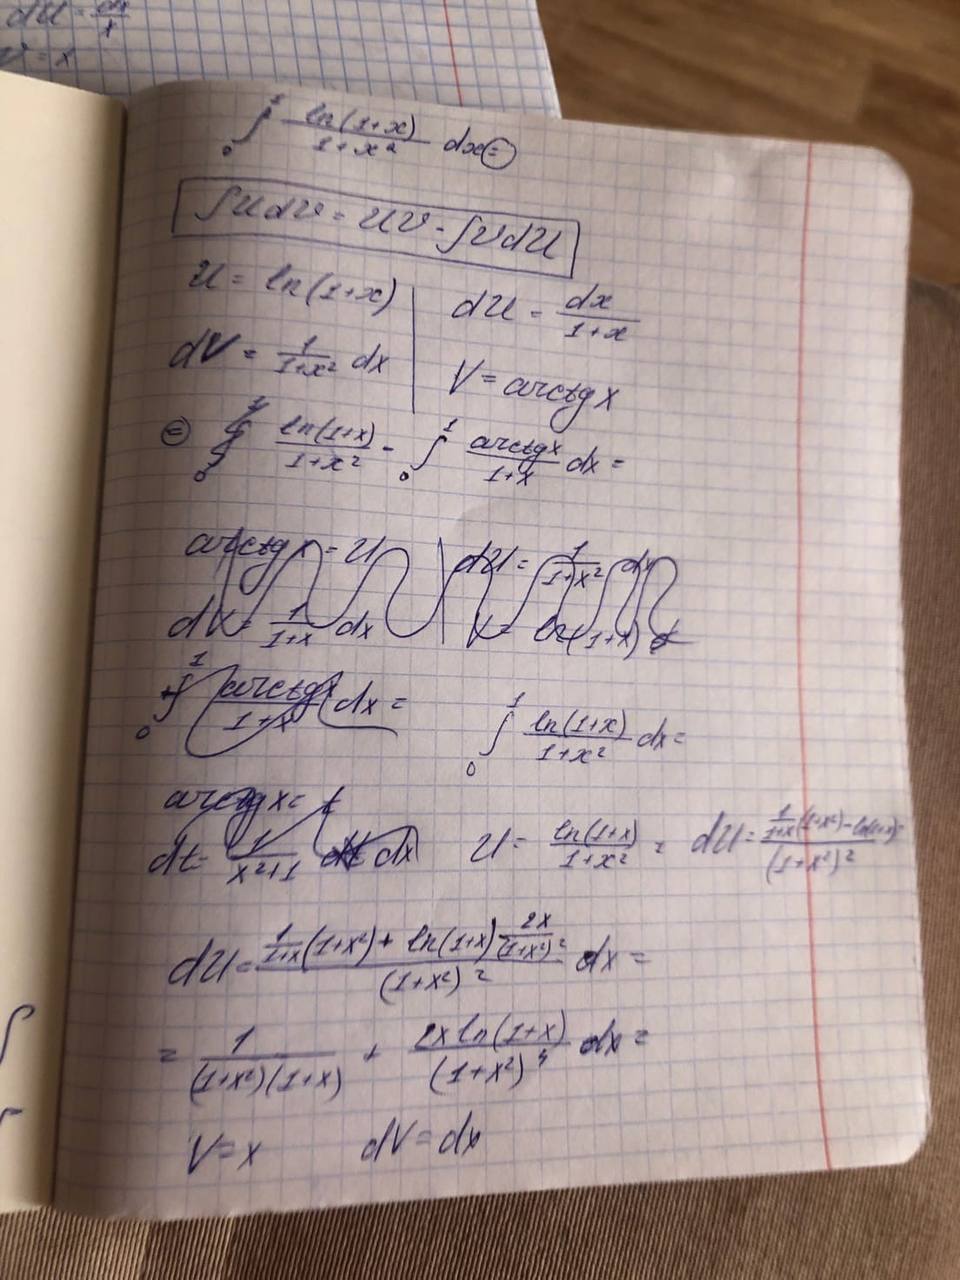 dU = dx/x
V = x
∫₀¹ ln(1+x)/(1+x²) dx ⊜
∫UdV = UV - ∫VdU
U = ln(1+x) | dU = dx/(1+x)
dV = 1/(1+x²) dx | V = arctg x
⊜ ln(1+x)/(1+x²) - ∫₀¹ arctg x/(1+x) dx =
arctg x = U | dU = 1/(1+x²) dx
dV = 1/(1+x) dx | V = ln(1+x)
∫₀¹ arctg x/(1+x) dx =
∫₀¹ ln(1+x)/(1+x²) dx =
arctg x = t
dt = 1/(x²+1) dx
U = ln(1+x)/(1+x²) = dU = (1/(1+x) (1+x²) - ln(1+x)·)/(1+x²)²
dU = (1/(1+x) (1+x²) + ln(1+x) 2x/(1+x²)²)/(1+x²)² dx =
= 1/((1+x²)(1+x)) + 2x ln(1+x)/(1+x²)⁴ dx =
V = x dV = dx